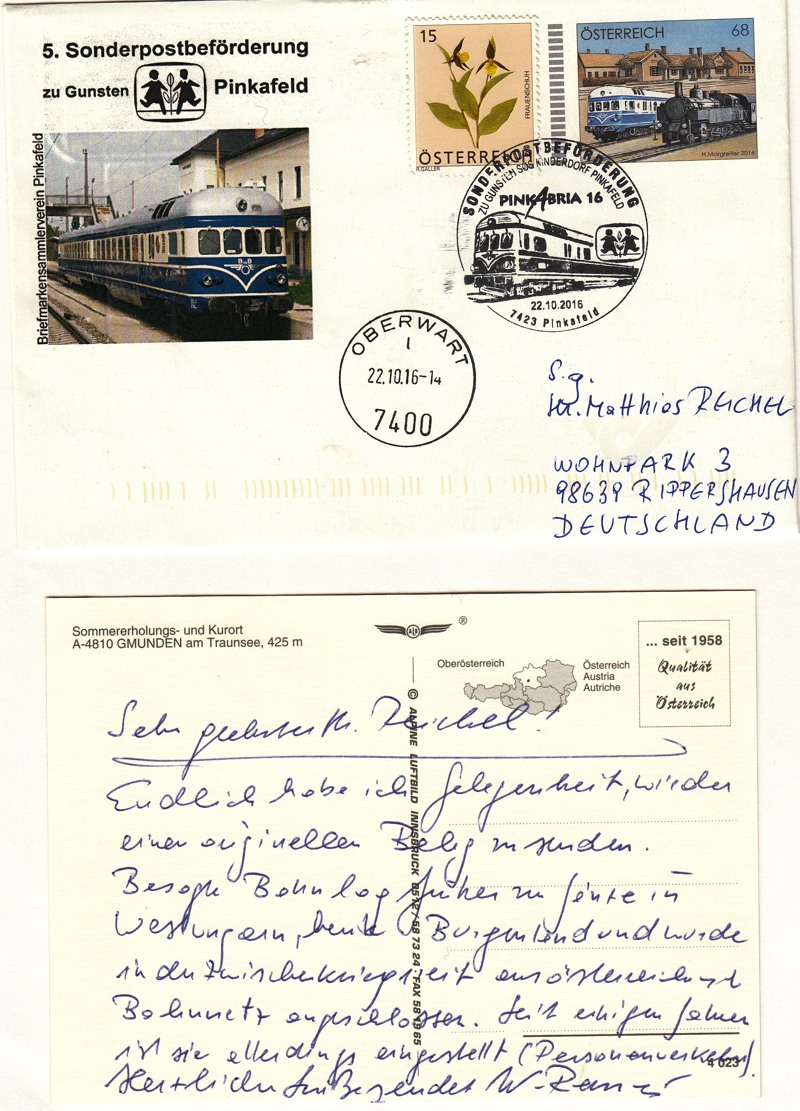 5. Sonderpostbeförderung
zu Gunsten Pinkafeld
Briefmarkensammlerverein Pinkafeld
15
FRAUENSCHUH
ÖSTERREICH
R.GALLER
ÖSTERREICH 68
H.Margreiter 2016
SONDERPOSTBEFÖRDERUNG
ZU GUNSTEN SOS KINDERDORF PINKAFELD
PINKABRIA 16
22.10.2016
7423 Pinkafeld
OBERWART
1
22.10.16-14
7400
S.g.
Hr. Matthias REICHEL
WOHNPARK 3
98639 RIPPERSHAUSEN
DEUTSCHLAND
Sommererholungs- und Kurort
A-4810 GMUNDEN am Traunsee, 425 m
ALB ®
Oberösterreich
Österreich
Austria
Autriche
... seit 1958
Qualität
aus
Österreich
© ALPINE LUFTBILD INNSBRUCK 0512 / 58 73 24 · FAX 58 19 65
Sehr geehrter Hr. Reichel!
Endlich habe ich Gelegenheit, wieder
einen originellen Beleg zu senden.
Besagte Bahn lag früher zur Gänze in
Westungarn, heute Burgenland und wurde
in der Zwischenkriegszeit ans österreichische
Bahnnetz angeschlossen. Seit einigen Jahren
ist sie allerdings eingestellt (Personenverkehr).
4 023
Herzliche Grüße sendet W.